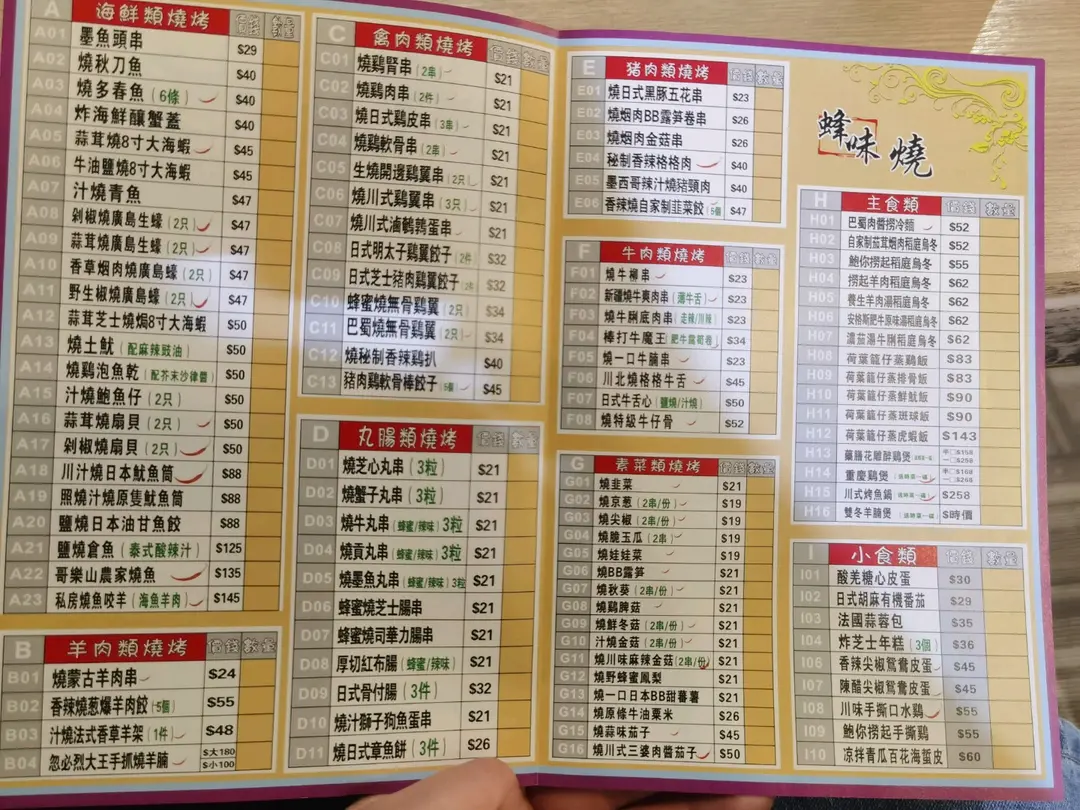 A 海鮮類燒烤 價錢 數量
A01 墨魚頭串 $29
A02 燒秋刀魚 $40
A03 燒多春魚（6條） $40
A04 炸海鮮釀蟹蓋 $40
A05 蒜茸燒8寸大海蝦 $45
A06 牛油鹽燒8寸大海蝦 $45
A07 汁燒青魚 $47
A08 剁椒燒廣島生蠔（2只） $47
A09 蒜茸燒廣島生蠔（2只） $47
A10 香草烟肉燒廣島蠔（2只） $47
A11 野生椒燒廣島蠔（2只） $47
A12 蒜茸芝士燒焗8寸大海蝦 $50
A13 燒土魷（配麻辣豉油） $50
A14 燒鷄泡魚乾（配芥末沙律醬） $50
A15 汁燒鮑魚仔（2只） $50
A16 蒜茸燒扇貝（2只） $50
A17 剁椒燒扇貝（2只） $50
A18 川汁燒日本魷魚筒 $88
A19 照燒汁燒原隻魷魚筒 $88
A20 鹽燒日本油甘魚鮫 $88
A21 鹽燒倉魚（泰式酸辣汁） $125
A22 哥樂山農家燒魚 $135
A23 私房燒魚咬羊（海魚羊肉） $145
B 羊肉類燒烤 價錢 數量
B01 燒蒙古羊肉串 $24
B02 香辣燒葱爆羊肉餃（5個） $55
B03 汁燒法式香草羊架（1件） $48
B04 忽必烈大王手抓燒羊腩 $大180 $小100
C 禽肉類燒烤 價錢 數量
C01 燒鷄腎串（2串） $21
C02 燒鷄肉串（2件） $21
C03 燒日式鷄皮串（3串） $21
C04 燒鷄軟骨串（2串） $21
C05 生燒開邊鷄翼串（2只） $21
C06 燒川式鷄翼串（3只） $21
C07 燒川式滷鵪鶉蛋串 $21
C08 日式明太子鷄翼餃子（2件） $32
C09 日式芝士豬肉鷄翼餃子 $32
C10 蜂蜜燒無骨鷄翼（2只） $34
C11 巴蜀燒無骨鷄翼（2只） $34
C12 燒秘制香辣鷄扒 $40
C13 豬肉鷄軟骨棒餃子（5個） $45
D 丸腸類燒烤 價錢 數量
D01 燒芝心丸串（3粒） $21
D02 燒蟹子丸串（3粒） $21
D03 燒牛丸串（蜂蜜/辣味）3粒 $21
D04 燒貢丸串（蜂蜜/辣味）3粒 $21
D05 燒墨魚丸串（蜂蜜/辣味）3粒 $21
D06 蜂蜜燒芝士腸串 $21
D07 蜂蜜燒司華力腸串 $21
D08 厚切紅布腸（蜂蜜/辣味） $21
D09 日式骨付腸（3件） $32
D10 燒汁獅子狗魚蛋串 $21
D11 燒日式章魚餅（3件） $26
E 猪肉類燒烤 價錢 數量
E01 燒日式黑豚五花串 $23
E02 燒烟肉BB露笋卷串 $26
E03 燒烟肉金菇串 $26
E04 秘制香辣格格肉 $40
E05 墨西哥辣汁燒豬頸肉 $40
E06 香辣燒自家制韮菜餃（5個） $47
F 牛肉類燒烤 價錢 數量
F01 燒牛柳串 $23
F02 新疆燒牛爽肉串（薄牛舌） $23
F03 燒牛脷底肉串（走辣/川辣） $23
F04 棒打牛魔王（肥牛露荀卷） $34
F05 燒一口牛腩串 $23
F06 川北燒格格牛舌 $45
F07 日式牛舌心（鹽燒/汁燒） $50
F08 燒特級牛仔骨 $52
G 素菜類燒烤 價錢 數量
G01 燒韭菜 $21
G02 燒京葱（2串/份） $19
G03 燒尖椒（2串/份） $19
G04 燒脆玉瓜（2串） $19
G05 燒娃娃菜 $19
G06 燒BB露笋 $21
G07 燒秋葵（2串/份） $21
G08 燒鷄脾菇 $21
G09 燒鮮冬菇（2串/份） $21
G10 汁燒金菇（2串/份） $21
G11 燒川味麻辣金菇（2串/份） $21
G12 燒野蜂蜜鳳梨 $21
G13 燒一口日本BB甜蕃薯 $21
G14 燒原條牛油粟米 $26
G15 燒蒜味茄子 $45
G16 燒川式三婆肉醬茄子 $50
蜂味燒
H 主食類 價錢 數量
H01 巴蜀肉醬撈冷麵 $52
H02 自家制茄茸烟肉稻庭烏冬 $52
H03 鮑你撈起稻庭烏冬 $55
H04 撈起羊肉稻庭烏冬 $62
H05 養生羊肉湯稻庭烏冬 $62
H06 安格斯肥牛原味湯稻庭烏冬 $62
H07 濃茄湯牛脷稻庭烏冬 $62
H08 荷葉籠仔蒸鷄飯 $83
H09 荷葉籠仔蒸排骨飯 $83
H10 荷葉籠仔蒸鮮魷飯 $90
H11 荷葉籠仔蒸斑球飯 $90
H12 荷葉籠仔蒸虎蝦飯 $143
H13 藥膳花雕醉鷄煲 半□$158 一□$298
H14 重慶鷄煲 半□$168 一□$268
H15 川式烤魚鍋 $258
H16 雙冬羊腩煲 $時價
I 小食類 價錢 數量
I01 酸羌糖心皮蛋 $30
I02 日式胡麻有機番茄 $29
I03 法國蒜蓉包 $35
I04 炸芝士年糕（3個） $36
I06 香辣尖椒鴛鴦皮蛋 $45
I07 陳醋尖椒鴛鴦皮蛋 $45
I08 川味手撕口水鷄 $55
I09 鮑你撈起手撕鷄 $55
I10 凉拌青瓜百花海蜇皮 $60